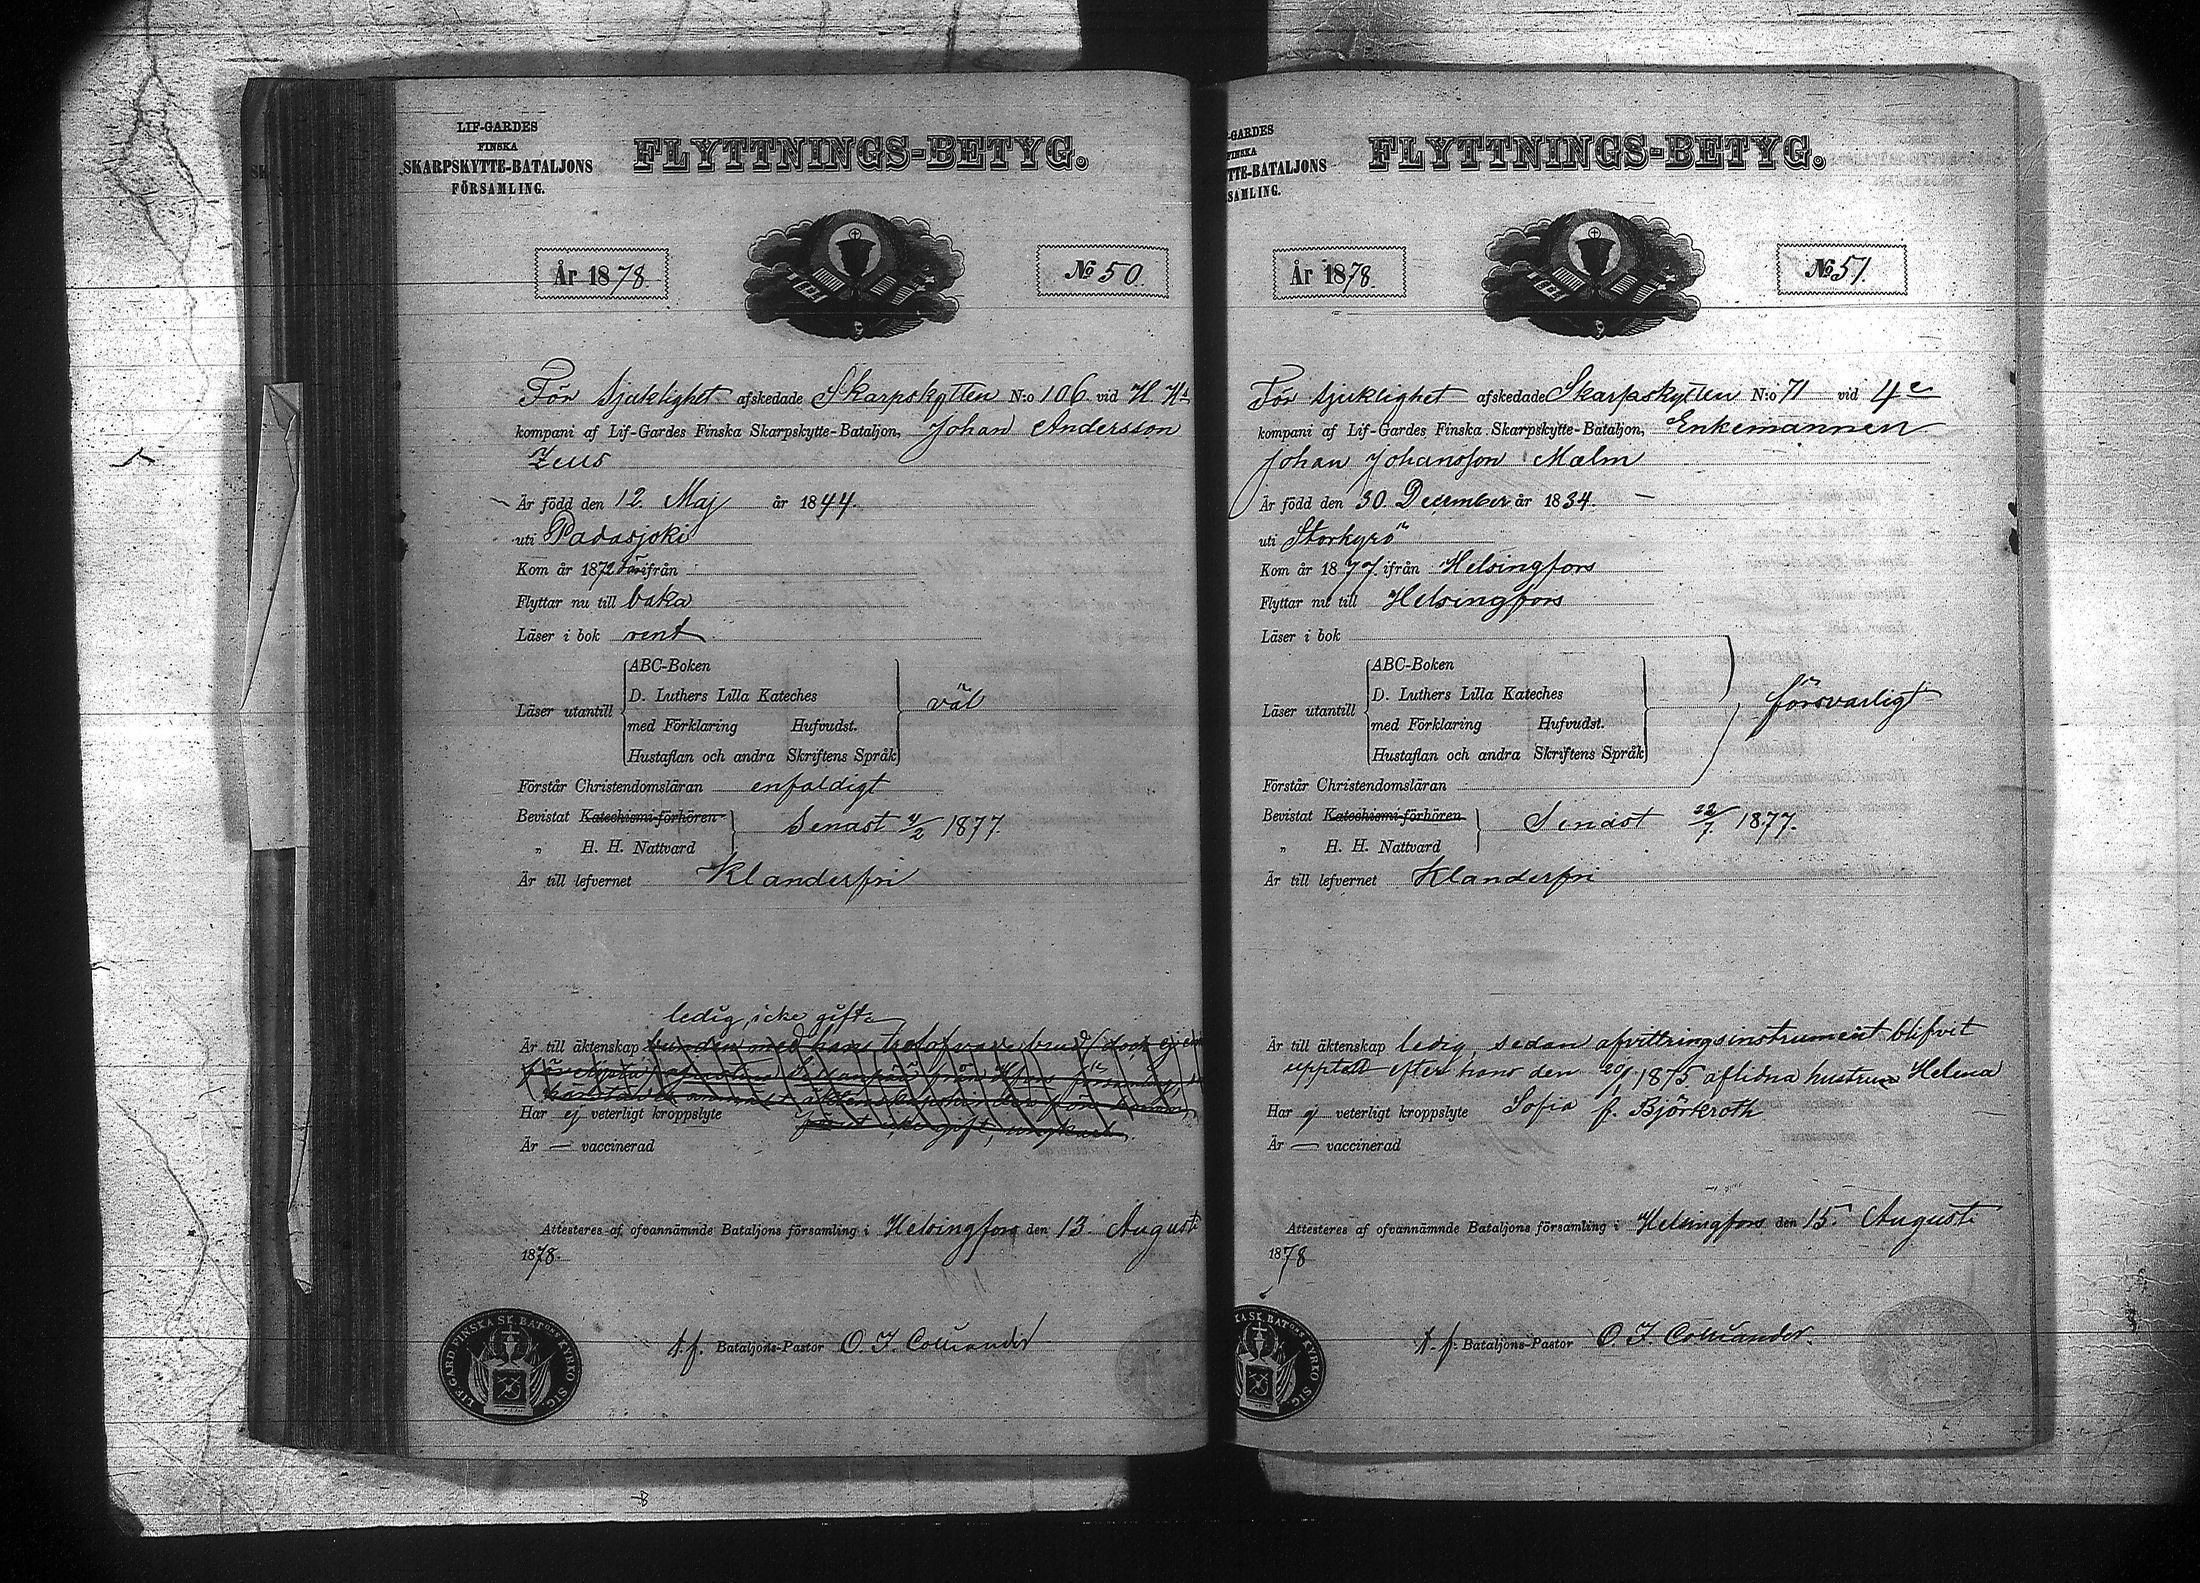 LIF-GARDES
FINSKA
SKARPSKYTTE-BATALJONS
FÖRSAMLING.
FLYTTNINGS-BETYG.
År 1878.
No 50.
För sjuklighet afskedade Skarpskytten N:o 106 vid H. H:s
kompani af Lif-Gardes Finska Skarpskytte-Bataljon, Johan Andersson
Zeus
Är född den 12 Maj år 1844.
uti Padasjoki
Kom år 1872 därifrån
Flyttar nu till baka
Läser i bok rent
Läser utantill
ABC-Boken
D. Luthers Lilla Kateches
med Förklaring Hufvudst.
Hustaflan och andra Skriftens Språk
väl
Förstår Christendomsläran enfaldigt
Bevistat Katechismi-förhören
„ H. H. Nattvard
Senast 4/2 1877.
Är till lefvernet Klanderfri
ledig, icke gift
Är till äktenskap bunden med hans trolofvade brud
Har ej veterligt kroppslyte
Är — vaccinerad
Attesteres af ofvannämnde Bataljons församling i Helsingfors den 13 August
1878.
LIF GARD FINSKA SK. BATONS KYRKO SIG.
t.f. Bataljons-Pastor O. F. Colliander
-GARDES
FINSKA
TTE-BATALJONS
SAMLING.
FLYTTNINGS-BETYG.
År 1878.
No 51.
För sjuklighet afskedade Skarpskytten N:o 71 vid 4e
kompani af Lif-Gardes Finska Skarpskytte-Bataljon, Enkemannen
Johan Johansson Malm
Är född den 30 December år 1834. —
uti Storkyrö
Kom år 1877. ifrån Helsingfors
Flyttar nu till Helsingfors
Läser i bok
Läser utantill
ABC-Boken
D. Luthers Lilla Kateches
med Förklaring Hufvudst.
Hustaflan och andra Skriftens Språk
försvarligt
Förstår Christendomsläran
Bevistat Katechismi-förhören
„ H. H. Nattvard
Senast 22/7 1877.
Är till lefvernet Klanderfri
Är till äktenskap ledig, sedan afvittringsinstrument blifvit
upptadt efter hans den 20/1 1875 aflidna hustru Helena
Har ej veterligt kroppslyte Sofia f. Björkroth
Är — vaccinerad
Attesteres af ofvannämnde Bataljons församling i Helsingfors den 15 August
1878
KA SK. BATONS KYRKO SIG.
t.f. Bataljons-Pastor O. F. Colliander.